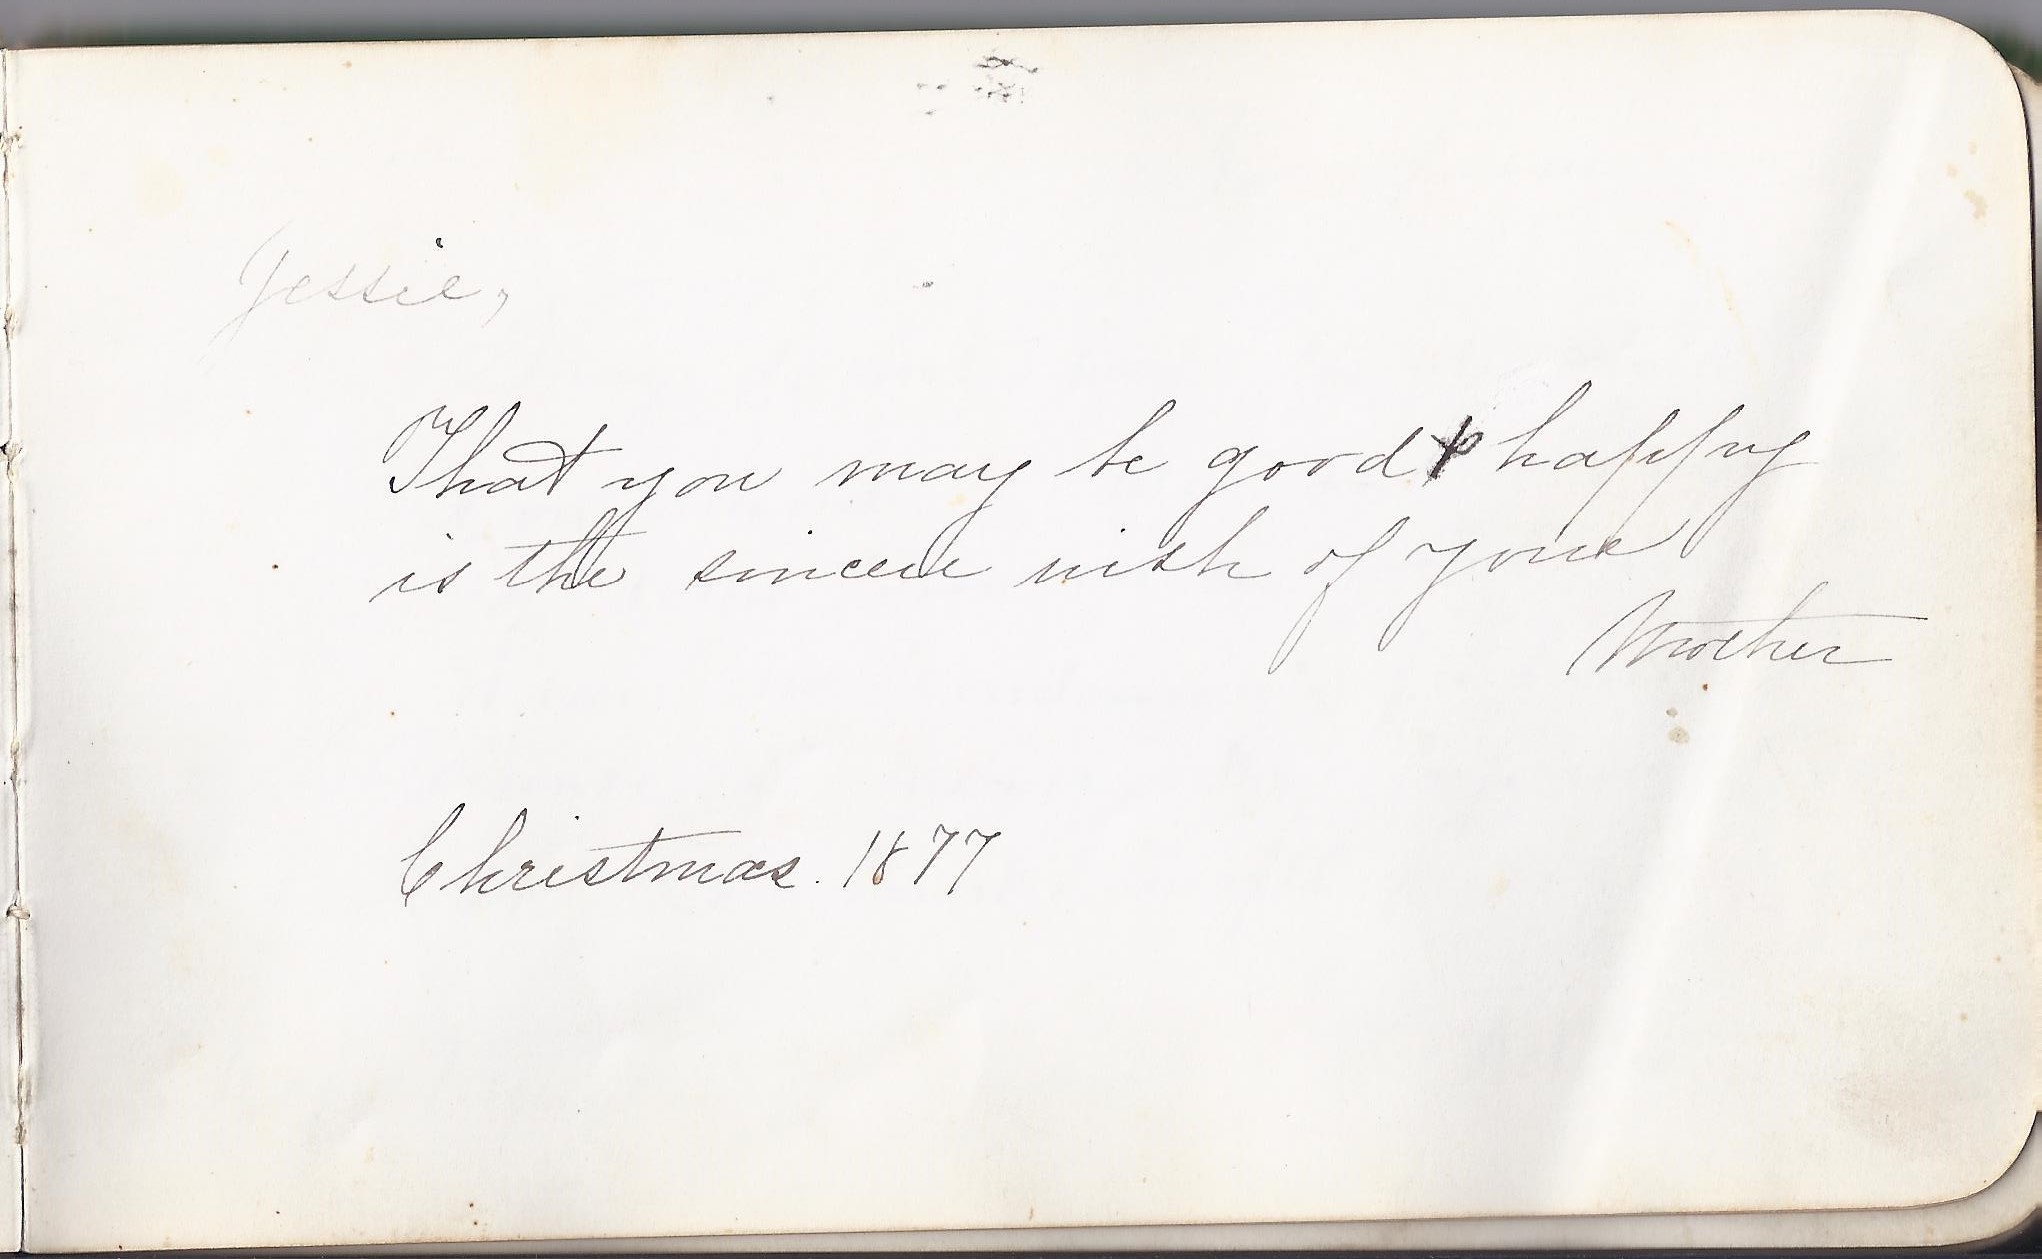 Jessie,
That you may be good & happy
is the sincere wish of your
Mother
Christmas. 1877